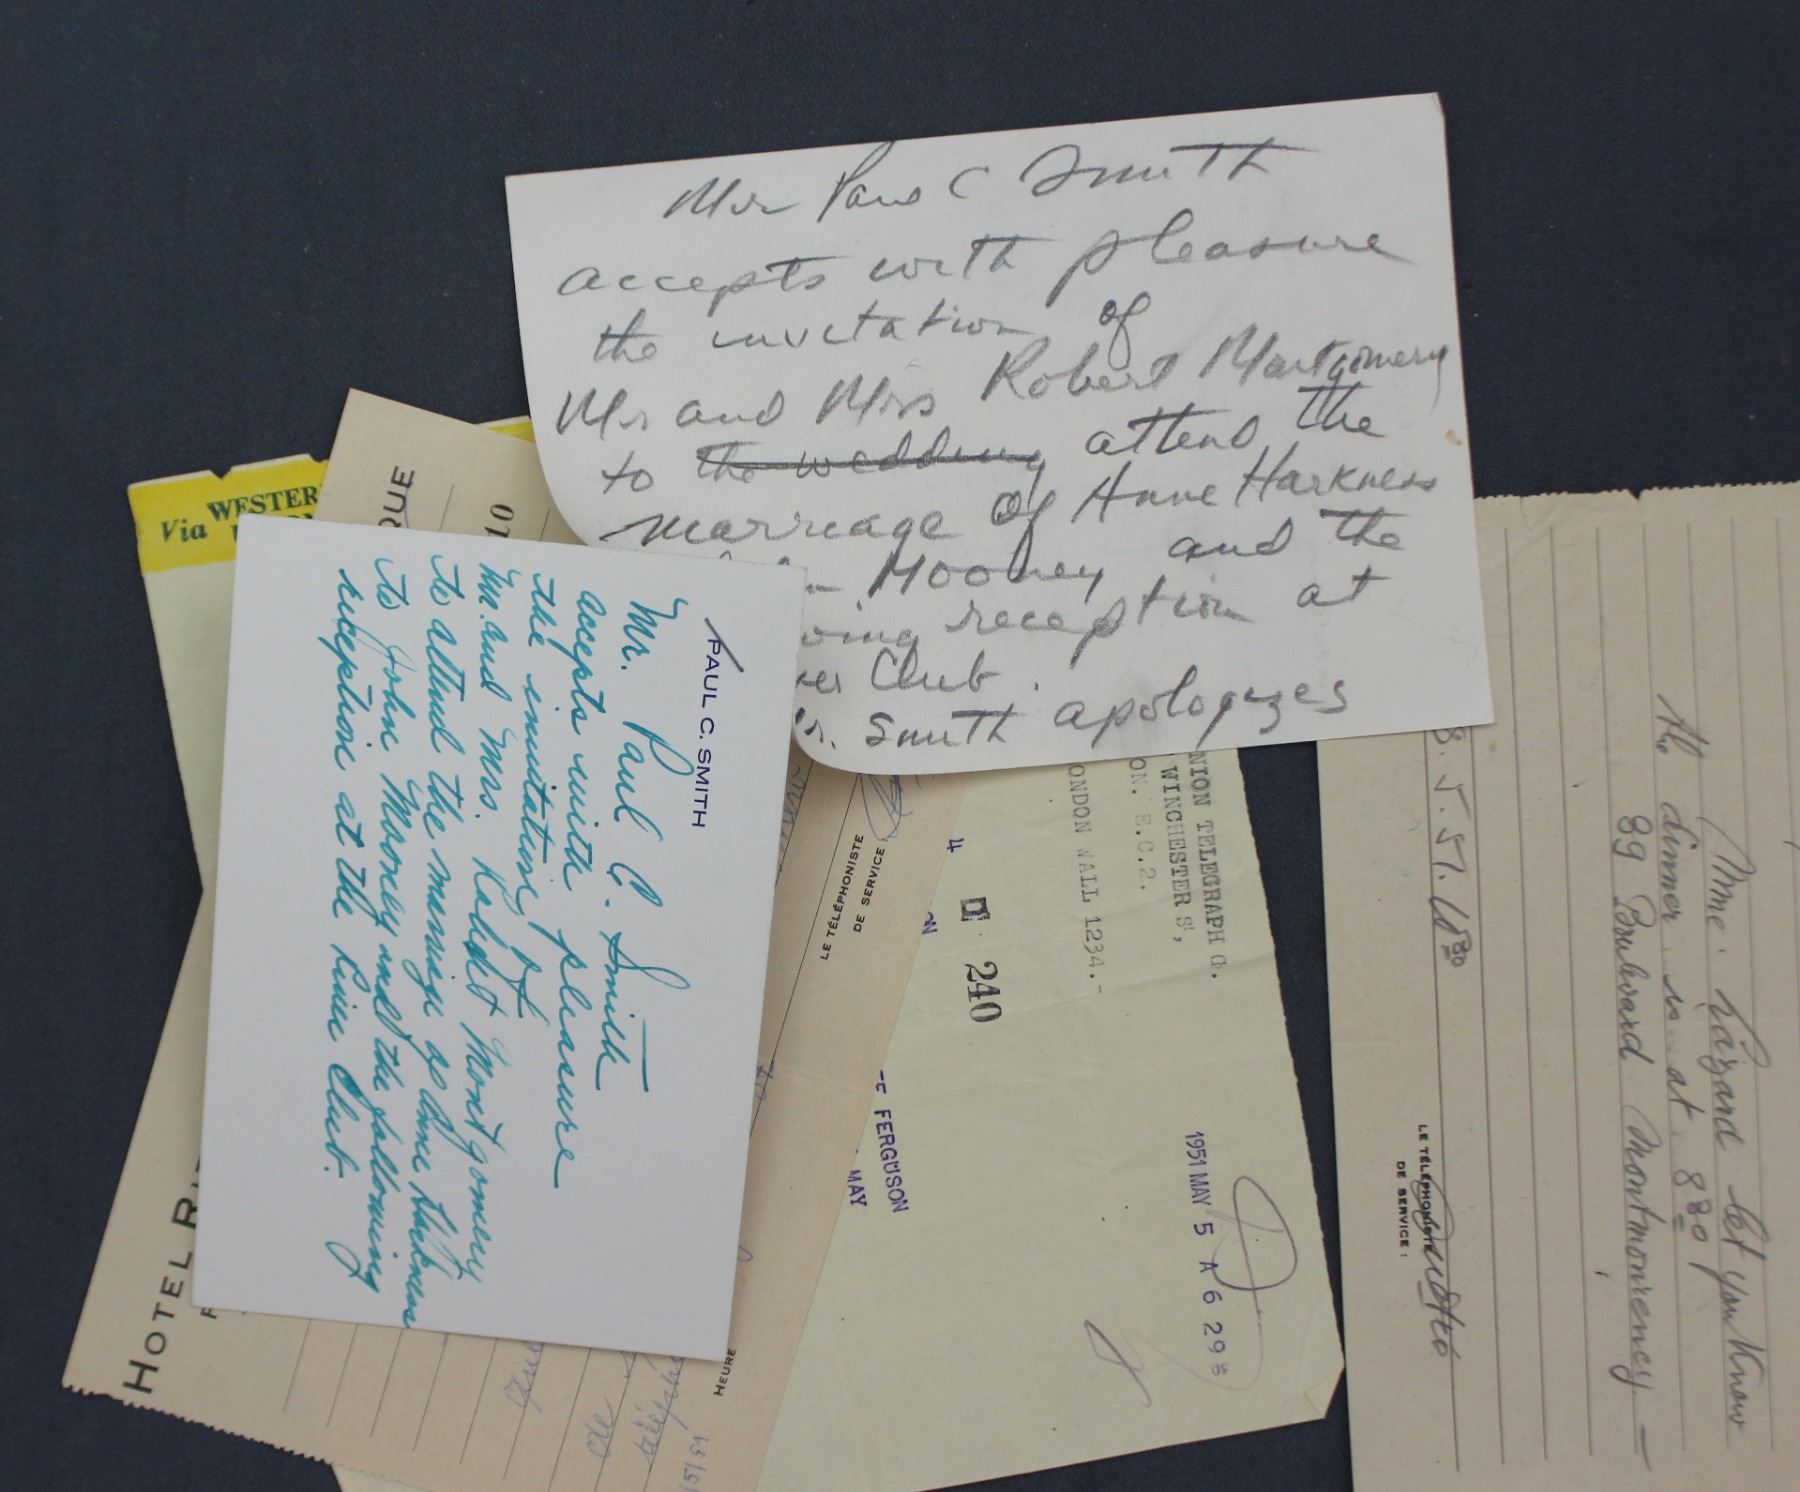 Mr Paul C Smith
accepts with pleasure
the invitation of
Mr and Mrs Robert Montgomery
to the wedding attend the
marriage of Anne Harkness
Mooney and the
reception at
Club.
Smith apologizes
PAUL C. SMITH
Mr. Paul C. Smith
accepts with pleasure
the invitation of
Mr. and Mrs. Robert Montgomery
to attend the marriage of Anne Harkness
to John Mooney and the following
reception at the River Club.
Via WESTER
QUE
HOTEL R
LE TÉLÉPHONISTE
DE SERVICE:
HEURE
de
NION TELEGRAPH C.
WINCHESTER S',
ON. E.C.2.
ONDON WALL 1234.-
4
240
FERGUSON
MAY
1951 MAY 5 A 6 29
Mme. Lizard let you know
the dinner is at 8 30
89 Boulevard Montmorency —
5. 51.
LE TÉLÉPHONISTE
DE SERVICE: